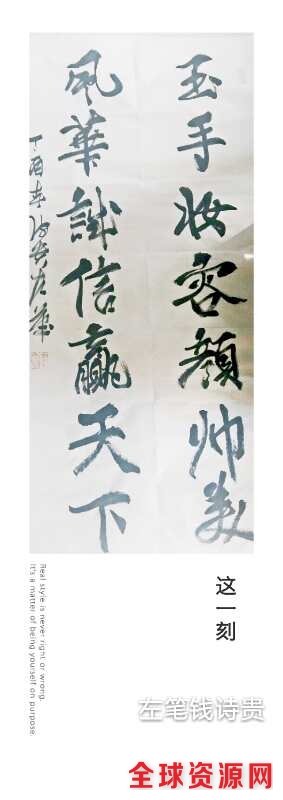 玉手妆容颜帅美
风華誠信贏天下
这一刻
Real style is never right or wrong.
It's a matter of being yourself on purpose.
左笔钱诗贵
全球资源网